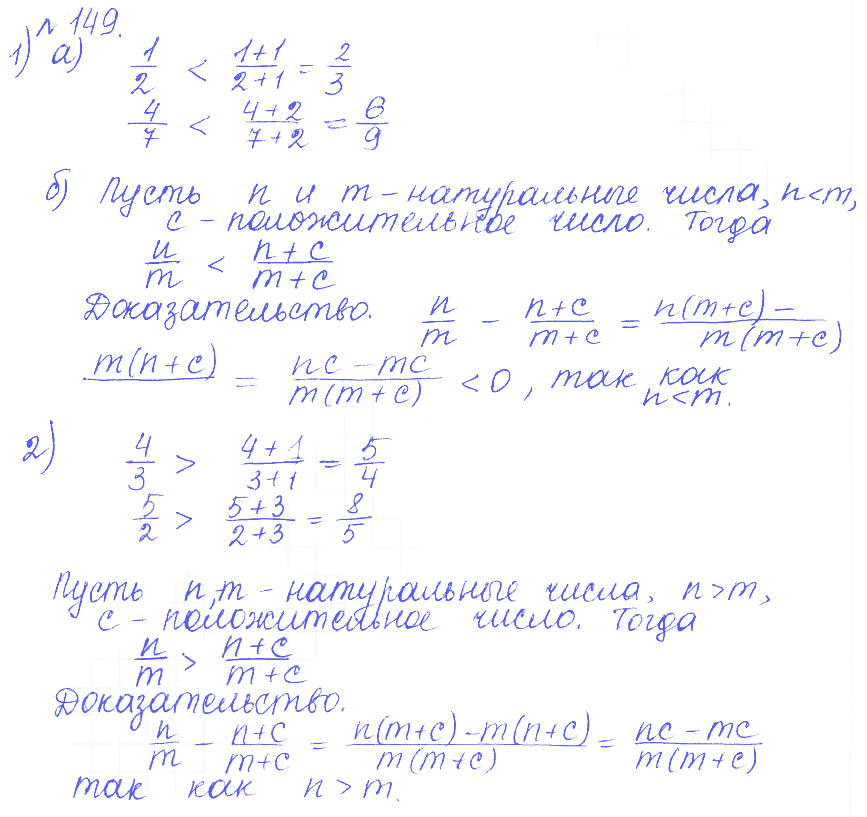 № 149.
1) а) 1/2 < (1+1)/(2+1) = 2/3
4/7 < (4+2)/(7+2) = 6/9
б) Пусть n и m – натуральные числа, n<m,
c – положительное число. Тогда
n/m < (n+c)/(m+c)
Доказательство. n/m – (n+c)/(m+c) = (n(m+c) –
m(n+c))/(m(m+c)) = (nc – mc)/(m(m+c)) < 0, так как
n<m.
2) 4/3 > (4+1)/(3+1) = 5/4
5/2 > (5+3)/(2+3) = 8/5
Пусть n,m – натуральные числа, n>m,
c – положительное число. Тогда
n/m > (n+c)/(m+c)
Доказательство.
n/m – (n+c)/(m+c) = (n(m+c)–m(n+c))/(m(m+c)) = (nc – mc)/(m(m+c))
так как n > m.